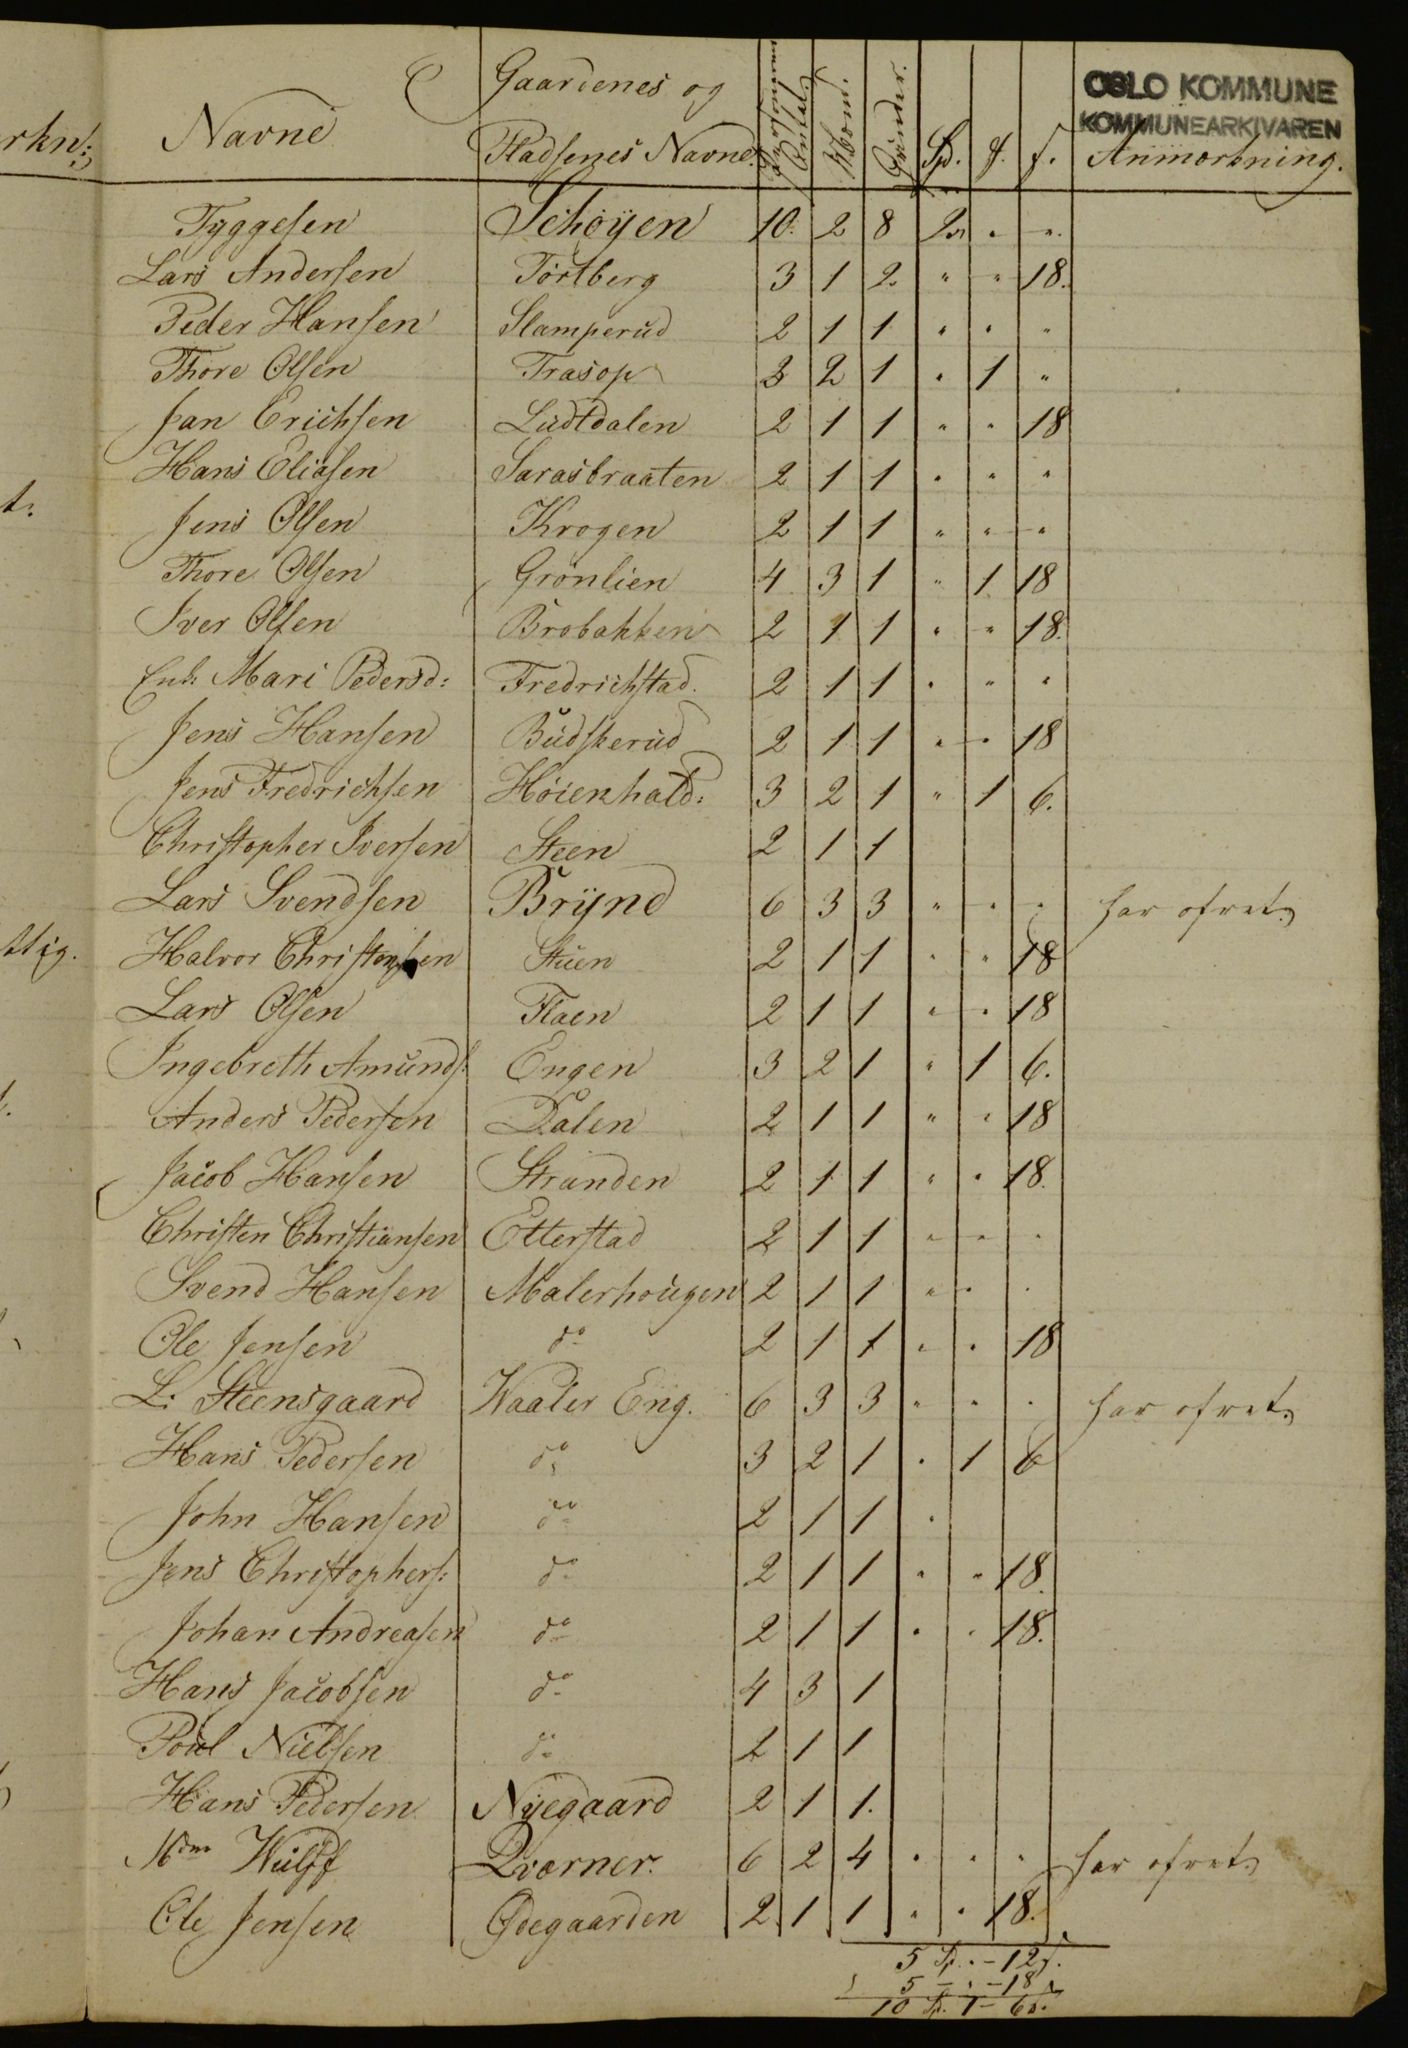 OSLO KOMMUNE
KOMMUNEARKIVAREN
rkn:
Navne Gaardenes og Pladsenes Navne Personernes Antal Mænd. Qvinder. Sp. f. s. Anmærkning.
Tyggesen Schøyen 10. 2 8 2 " "
Lars Andersen Tortberg 3 1 2 " " 18.
Peder Hansen Slamperud 2 1 1 " " "
Thore Olsen Trasop 3 2 1 " 1 "
Jan Erichsen Ludtdalen 2 1 1 " " 18
Hans Eliasen Sarasbraaten 2 1 1 " " "
Jens Olsen Krogen 2 1 1 " " "
Thore Olsen Grønlien 4 3 1 " 1 18
Iver Olsen Brobakken 2 1 1 " " 18.
Enk: Mari Pedersd: Fredrichstad. 2 1 1 " " "
Jens Hansen Budskerud 2 1 1 " " 18
Jens Fredrichsen Høienhald: 3 2 1 " 1 6.
Christopher Iversen Steen 2 1 1
Lars Svendsen Brynd 6 3 3 " " " har ofret.
Halvor Christophsen Stuen 2 1 1 " " 18
Lars Olsen Flaen 2 1 1 " " 18
Ingebreth Amunds: Engen 3 2 1 " 1 6.
Anders Pedersen Dalen 2 1 1 " " 18
Jacob Hansen Stranden 2 1 1 " " 18.
Christen Christiansen Etterstad 2 1 1 " " "
Svend Hansen Malerhougen 2 1 1 " " "
Ole Jensen do 2 1 1 " " 18
L: Steensgaard Waaler Eng. 6 3 3 " " " har ofret.
Hans Pedersen do 3 2 1 " 1 6
John Hansen do 2 1 1 "
Jens Christophers: do 2 1 1 " " 18.
Johan Andreasen do 2 1 1 " " 18.
Hans Jacobsen do 4 3 1
Poul Nielsen do 2 1 1
Hans Pedersen Nyegaard 2 1 1.
Mdm Wulff Qværner. 6 2 4 " " " har ofret.
Ole Jensen Ødegaarden 2 1 1 " " 18.
5 Sp. " - 12 s.
5 - " - 18
10 Sp. 1 - 6 s.